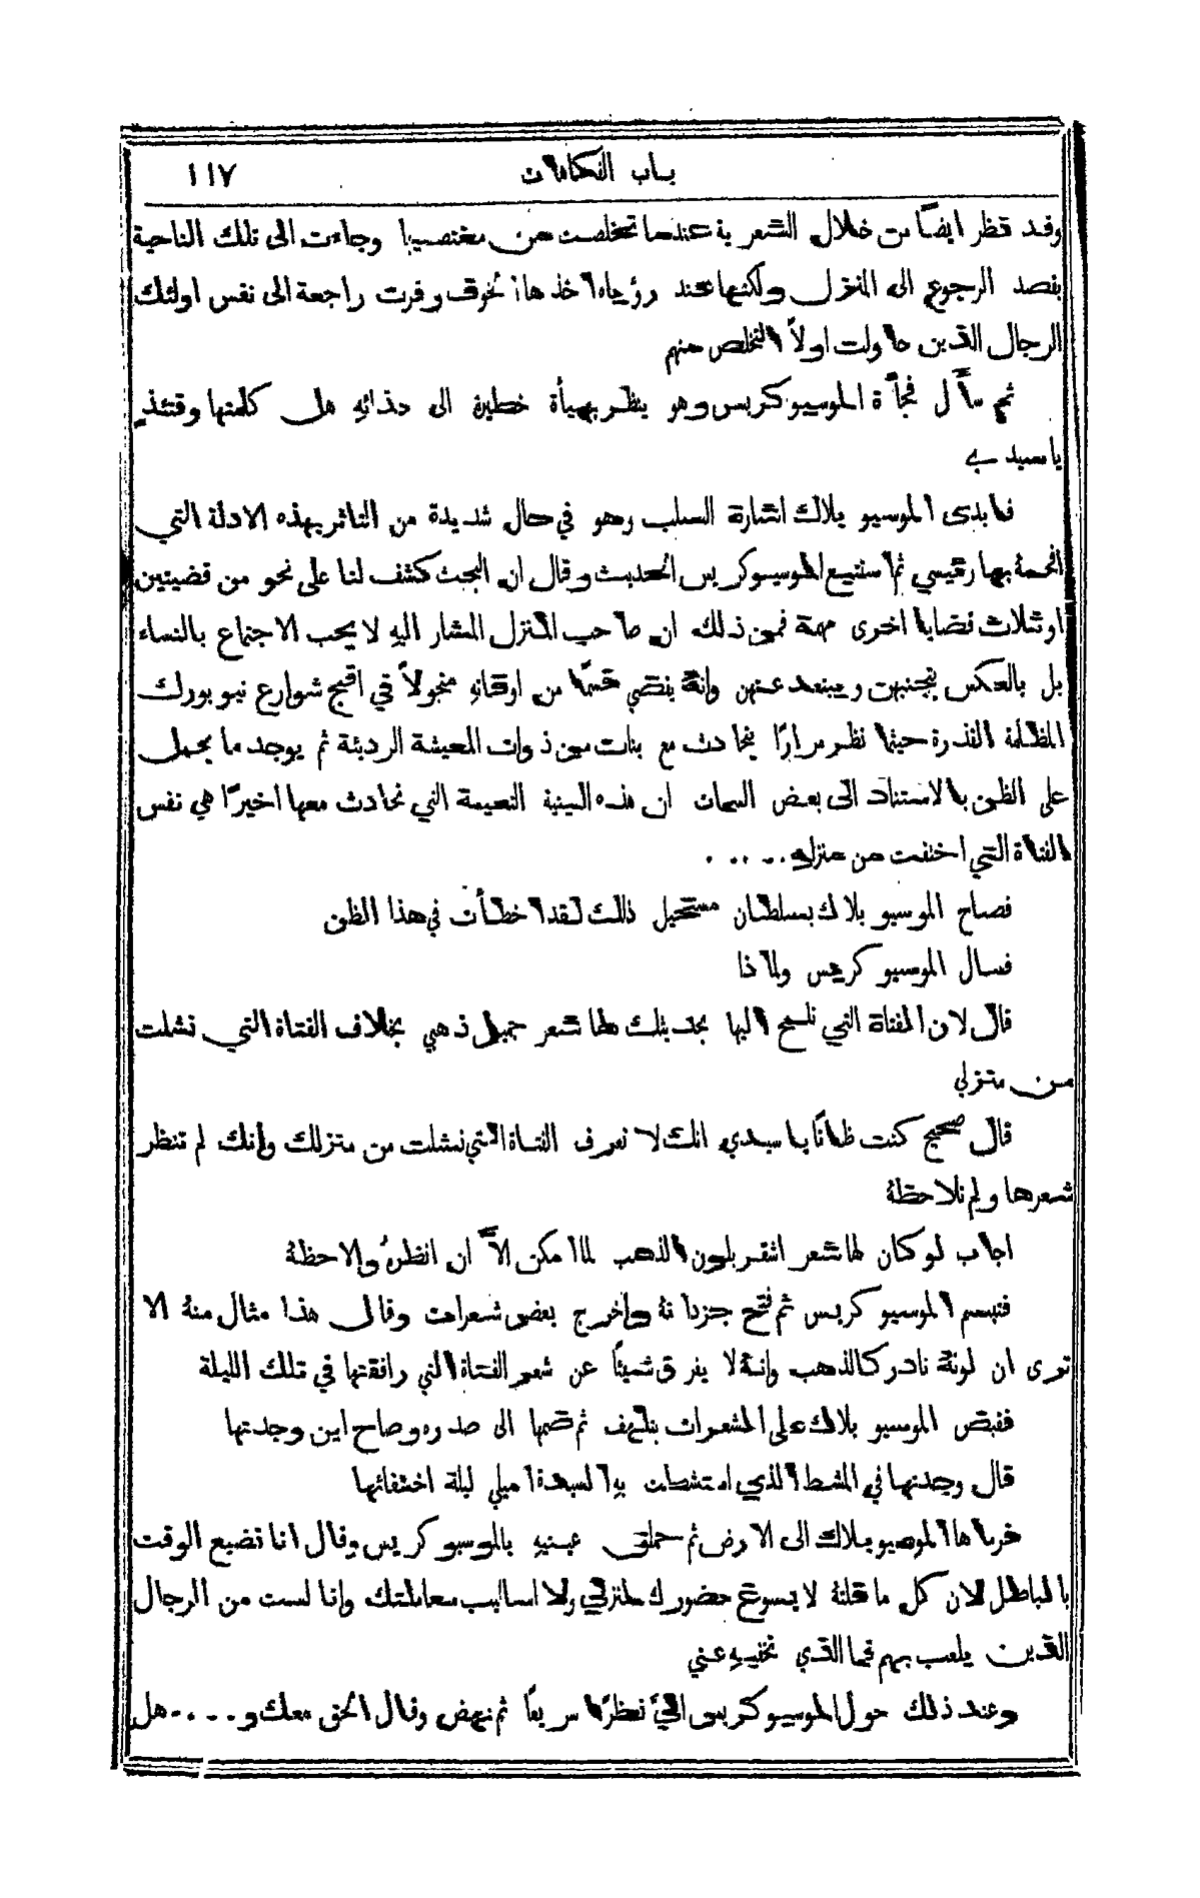 باب الفكاهات ١١٧
وقد نظر ايضًا من خلال الشعرية عندما تخلصت من مغتصبيها وجاءت الى تلك الناحية
بقصد الرجوع الى المنزل ولكنها عند رؤياه اخذها الخوف وفرت راجعة الى نفس اولئك
الرجال الذين حاولت اولاً التخلص منهم
ثم سأل فجأة الموسيو كريس وهو ينظر بهيأة خطيرة الى حذائهِ هل كلمتها وقتئذٍ
يا سيدي
فابدى الموسيو بلاك اشارة السلب وهو في حال شديدة من التاثر بهذه الادلة التي
افحمهُ بها رئيسي ثم استتبع الموسيو كريس الحديث وقال ان البحث كشف لنا على نحو من قضيتين
او ثلاث قضايا اخرى مهمة فمن ذلك ان صاحب المنزل المشار اليهِ لا يحب الاجتماع بالنساء
بل بالعكس يتجنبهن ويبتعد عنهن وانهُ يقضي قسمًا من اوقاتهِ متجولاً في اقبح شوارع نيويورك
المظلمة القذرة حيثما نظر مرارًا يتحادث مع بنات من ذوات المعيشة الرديئة ثم يوجد ما يحمل
على الظن بالاستناد الى بعض السمات ان هذه البنية التعيسة التي تحادث معها اخيرًا هي نفس
الفتاة التي اختفت من منزله . . . . .
فصاح الموسيو بلاك بسلطان مستحيل ذلك لقد اخطأت في هذا الظن
فسال الموسيو كريس ولماذا
قال لان الفتاة التي تلمح اليها بحديثك لها شعر جميل ذهبي بخلاف الفتاة التي نشلت
من منزلي
قال صحيح كنت ظانًا يا سيدي انك لا تعرف الفتاة التي نشلت من منزلك وانك لم تنظر
شعرها ولم تلاحظهُ
اجاب لو كان لها شعر اشقر بلون الذهب لما امكن الاَّ ان انظرهُ والاحظهُ
فتبسم الموسيو كريس ثم فتح جزدانهُ واخرج بعض شعرات وقال هذا مثال منهُ الا
ترى ان لونهُ نادر كالذهب وانهُ لا يفرق شيئًا عن شعر الفتاة التي رافقتها في تلك الليلة
فقبض الموسيو بلاك على الشعرات بتلهف ثم ضمها الى صدره وصاح اين وجدتها
قال وجدتها في المشط الذي امتشطت بهِ السيدة اميلي ليلة اختفائها
فرماها الموسيو بلاك الى الارض ثم حملق عينيهِ بالموسيو كريس وقال انا نضيع الوقت
بالباطل لان كل ما قلتهُ لا يسوغ حضورك لمنزلي ولا اساليب معاملتك وانا لست من الرجال
الذين يلعب بهم فما الذي تخفيهِ عني
وعند ذلك حول الموسيو كريس اليَّ نظرًا سريعًا ثم نهض وقال الحق معك و . . . . هل